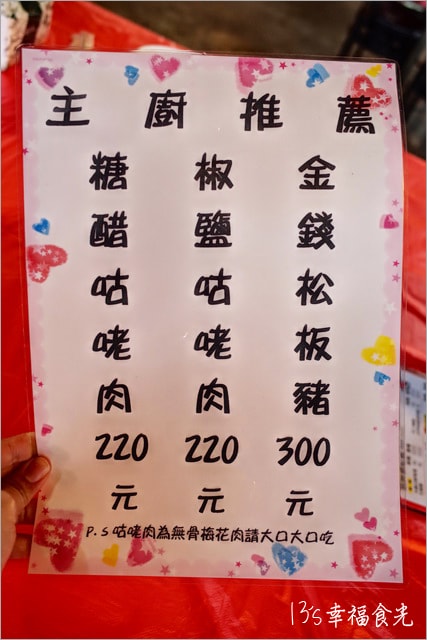 主廚推薦
金錢松板豬
300
元
椒鹽咕咾肉
220
元
糖醋咕咾肉
220
元
P.S咕咾肉為無骨梅花肉請大口大口吃
13's幸福食光